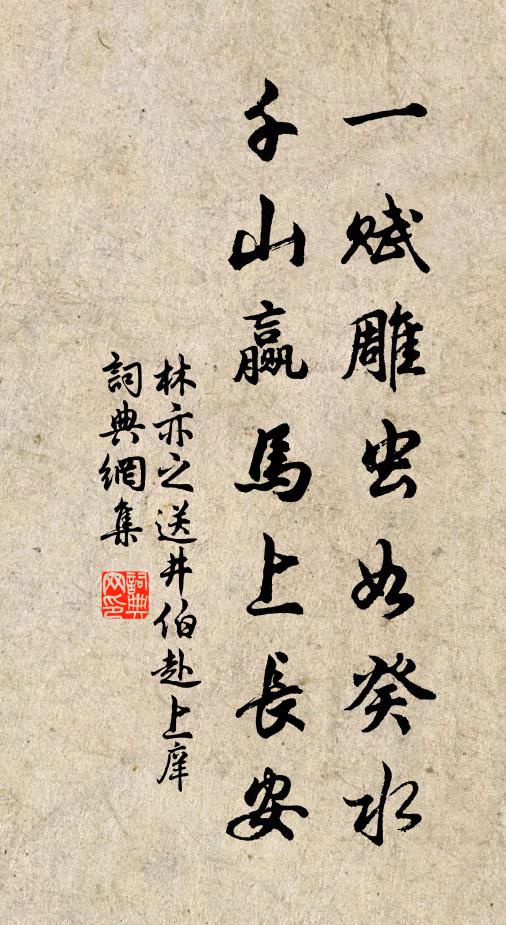 一賦雕虫如癸水
千山羸馬上長安
林亦之送井伯赴上庠
詞典網集
詞典
网印